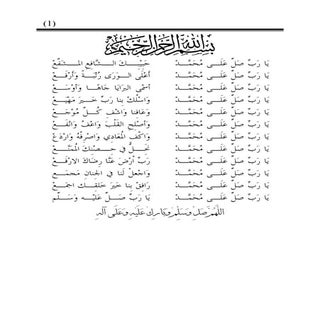 (1)
بسم الله الرحمن الرحيم
يَا رَبِّ صَلِّ عَلَى مُحَمَّدْ حَبِيبِكَ الشَّافِعِ الْمُشَفَّعْ
يَا رَبِّ صَلِّ عَلَى مُحَمَّدْ أَعْلَى الْوَرَى رُتْبَةً وَأَرْفَعْ
يَا رَبِّ صَلِّ عَلَى مُحَمَّدْ أَسْمَى الْبَرَايَا جَاهًا وَأَوْسَعْ
يَا رَبِّ صَلِّ عَلَى مُحَمَّدْ وَاسْلُكْ بِنَا رَبِّ خَيْرَ مَهْيَعْ
يَا رَبِّ صَلِّ عَلَى مُحَمَّدْ وَعَافِنَا وَاشْفِ كُلَّ مُوجَعْ
يَا رَبِّ صَلِّ عَلَى مُحَمَّدْ وَأَصْلِحِ الْقَلْبَ وَاعْفُ وَانْفَعْ
يَا رَبِّ صَلِّ عَلَى مُحَمَّدْ وَاكْفِ الْمُعَادِي وَاصْرِفْهُ وَارْدَعْ
يَا رَبِّ صَلِّ عَلَى مُحَمَّدْ نَحُلُّ فِي حِصْنِكَ الْمُمَنَّعْ
يَا رَبِّ صَلِّ عَلَى مُحَمَّدْ رَبِّ ارْضَ عَنَّا رِضَاكَ الْأَرْفَعْ
يَا رَبِّ صَلِّ عَلَى مُحَمَّدْ وَاجْعَلْ لَنَا فِي الْجِنَانِ مَجْمَعْ
يَا رَبِّ صَلِّ عَلَى مُحَمَّدْ رَافِقْ بِنَا خَيْرَ خَلْقِكَ اجْمَعْ
يَا رَبِّ صَلِّ عَلَى مُحَمَّدْ يَا رَبِّ صَلِّ عَلَيْهِ وَسَلِّمْ
اللهم صل وسلم وبارك عليه وعلى آله